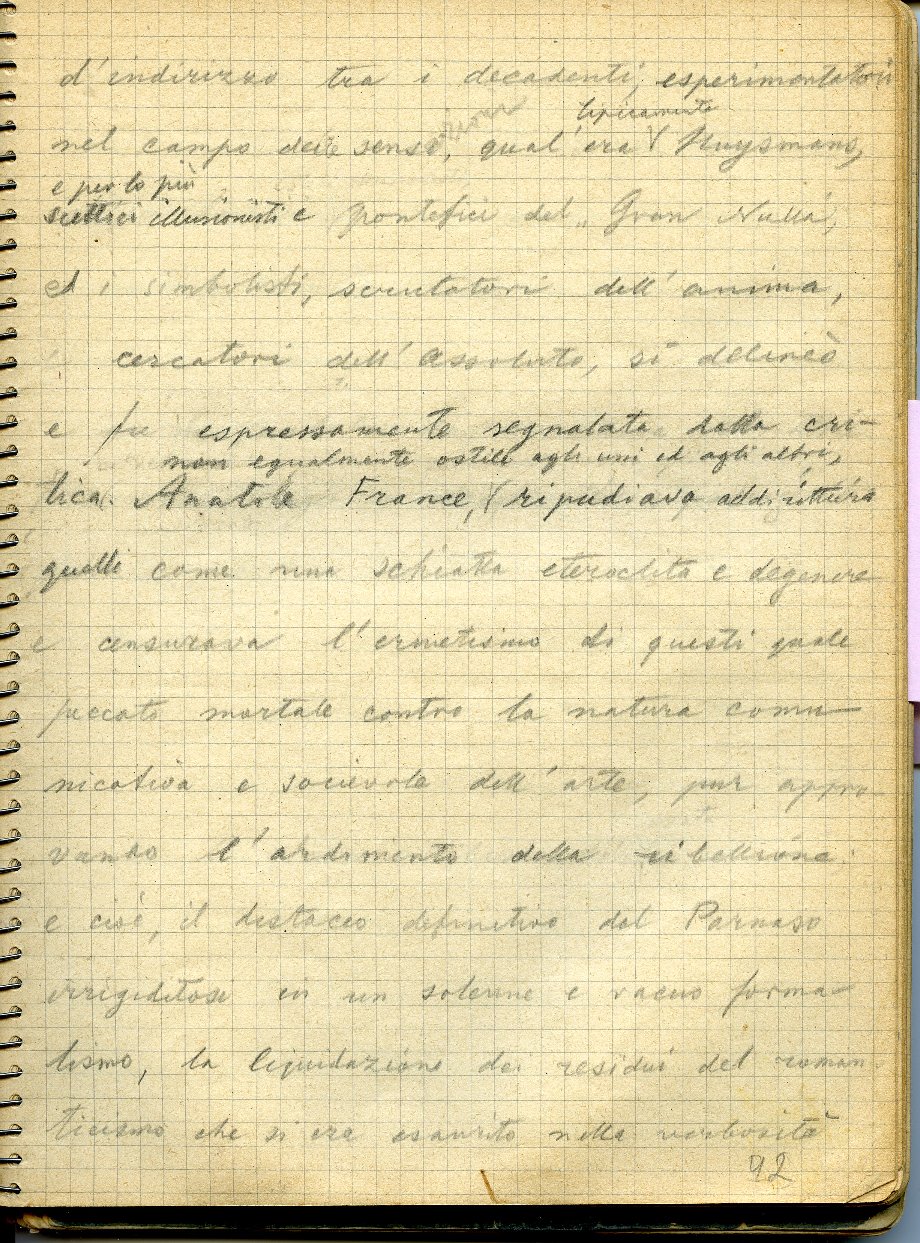 d'indirizzo tra i decadenti, esperimentatori
tipicamente
nel campo dei sensi, qual'era Huysmans,
e per lo più
scettici illusionisti e pontefici del „Gran Nulla",
ed i simbolisti, scrutatori dell'anima,
cercatori dell'Assoluto, si delineò
e fu espressamente segnalata dalla cri-
non egualmente ostile agli uni ed agli altri,
tica. Anatole France, ripudiava addirittura
quelli come una schiatta eteroclita e degenere
e censurava l'ermetismo di questi quale
peccato mortale contro la natura comu-
nicativa e socievole dell'arte, pur appro-
vando l'ardimento della ribellione
e cioè, il distacco definitivo dal Parnaso
irrigiditosi in un solenne e vacuo forma-
lismo, la liquidazione dei residui del roman-
ticismo che si era esaurito nella verbosità
92